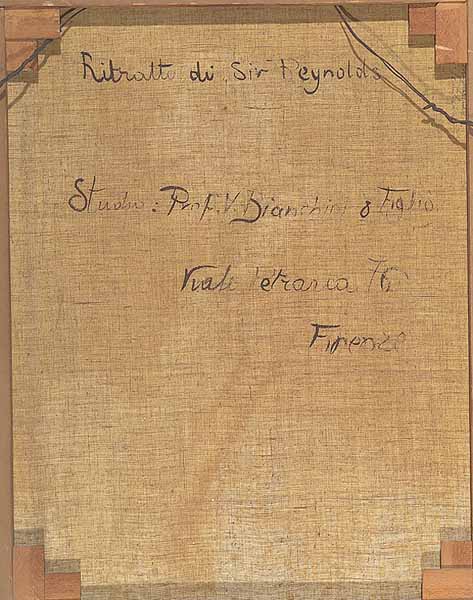 Ritratto di Sir Reynolds
Studio: Prof. V. Bianchini & Figlio
Viale Petrarca
Firenze